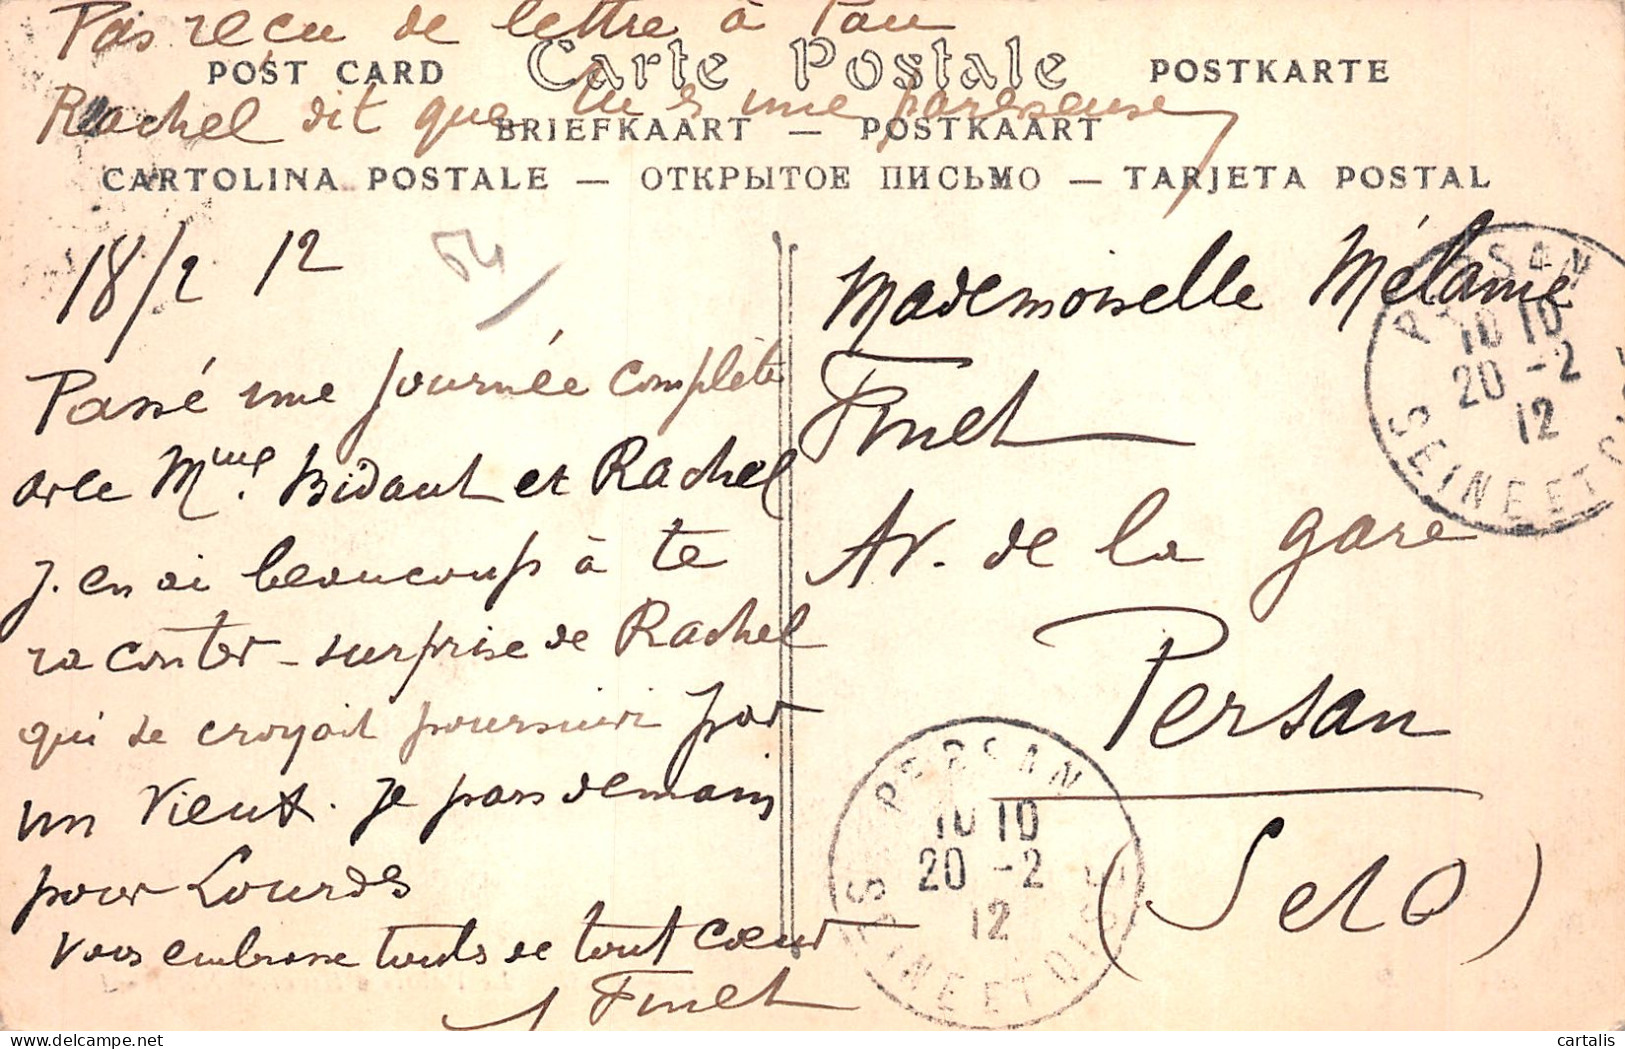 Pas reçu de lettre à Pau
POST CARD Carte Postale POSTKARTE
Rachel dit que tu es une paresseuse
BRIEFKAART — POSTKAART
CARTOLINA POSTALE — ОТКРЫТОЕ ПИСЬМО — TARJETA POSTAL
18/2 12
54
Passé une journée complète
avec Mme. Bidault et Rachel
J'en ai beaucoup à te
raconter - surprise de Rachel
qui se croyait poursuivi par
un vieux. Je pars demain
pour Lourdes
Vous embrasse touts de tout cœur
Finet
Mademoiselle Mélanie
Finet
Av. de la gare
Persan
(S et O)
PERSAN
10 10
20 -2
12
SEINE ET OISE
PERSAN
10 10
20 -2
12
SEINE ET OISE
cartalis